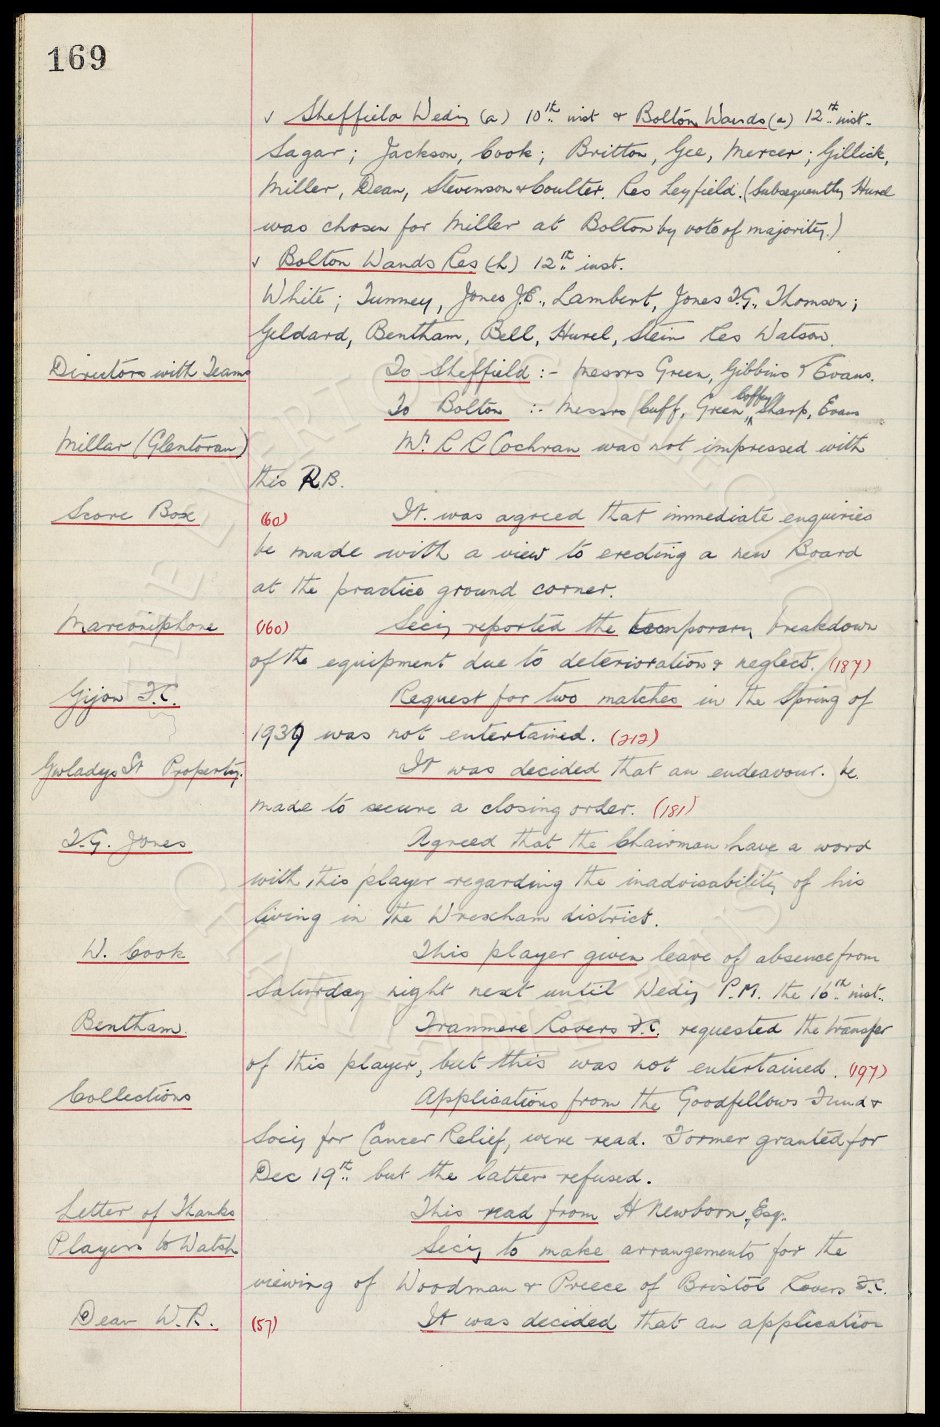 169
v Sheffield Wedy (a) 10th inst & Bolton Wands (a) 12th inst.
Sagar; Jackson, Cook; Britton, Gee, Mercer; Gillick,
Miller, Dean, Stevenson & Coulter. Res Leyfield. (Subsequently Hurel
was chosen for Miller at Bolton by vote of majority.)
v Bolton Wands Res (h) 12th inst.
White; Tunney, Jones J.E., Lambert, Jones T.G., Thomson;
Geldard, Bentham, Bell, Hurel, Stein Res Watson.
Directors with Teams To Sheffield :- Messrs Green, Gibbins & Evans.
To Bolton :- Messrs Cuff, Green, Coffey, Sharp, Evans
Millar (Glentoran) Mr. R R Cochran was not impressed with
this R.B.
Score Box (60) It was agreed that immediate enquiries
be made with a view to erecting a new Board
at the practice ground corner.
Marconiphone (160) Secy reported the temporary breakdown
of the equipment due to deterioration & neglect. (187)
Gijon F.C. Request for two matches in the Spring of
1939 was not entertained. (212)
Gwladys St Property. It was decided that an endeavour be
made to secure a closing order. (181)
T.G. Jones Agreed that the Chairman have a word
with this player regarding the inadvisability of his
living in the Wrexham district.
W. Cook This player given leave of absence from
Saturday night next until Wedy P.M. the 16th inst.
Bentham. Tranmere Rovers F.C. requested the transfer
of this player, but this was not entertained. (197)
Collections Applications from the Goodfellows Fund &
Socy for Cancer Relief, were read. Former granted for
Dec 19th but the latter refused.
Letter of Thanks This read from H Newborn, Esq.
Players to Watch Secy to make arrangements for the
viewing of Woodman & Preece of Bristol Rovers F.C.
Dean W.R. (57) It was decided that an application